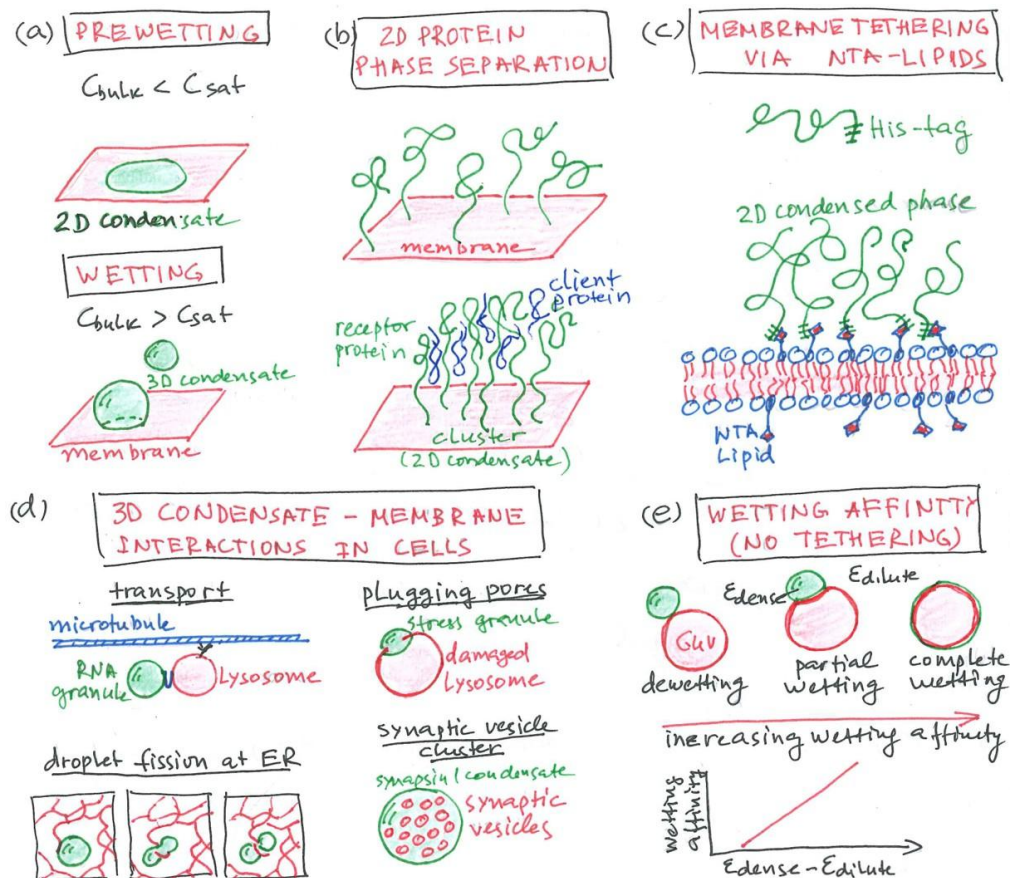 (a) PREWETTING
Cbulk < Csat
2D condensate
WETTING
Cbulk > Csat
3D condensate
membrane
(b) 2D PROTEIN
PHASE SEPARATION
membrane
client
protein
receptor
protein
cluster
(2D condensate)
(c) MEMBRANE TETHERING
VIA NTA-LIPIDS
His-tag
2D condensed phase
NTA
Lipid
(d) 3D CONDENSATE - MEMBRANE
INTERACTIONS IN CELLS
transport
microtubule
RNA
granule
Lysosome
droplet fission at ER
plugging pores
stress granule
damaged
Lysosome
synaptic vesicle
cluster
synapsin/condensate
synaptic
vesicles
(e) WETTING AFFINTY
(NO TETHERING)
Edense
Edilute
GUV
dewetting
partial
wetting
complete
wetting
increasing wetting affinity
wetting
affinity
Edense - Edilute